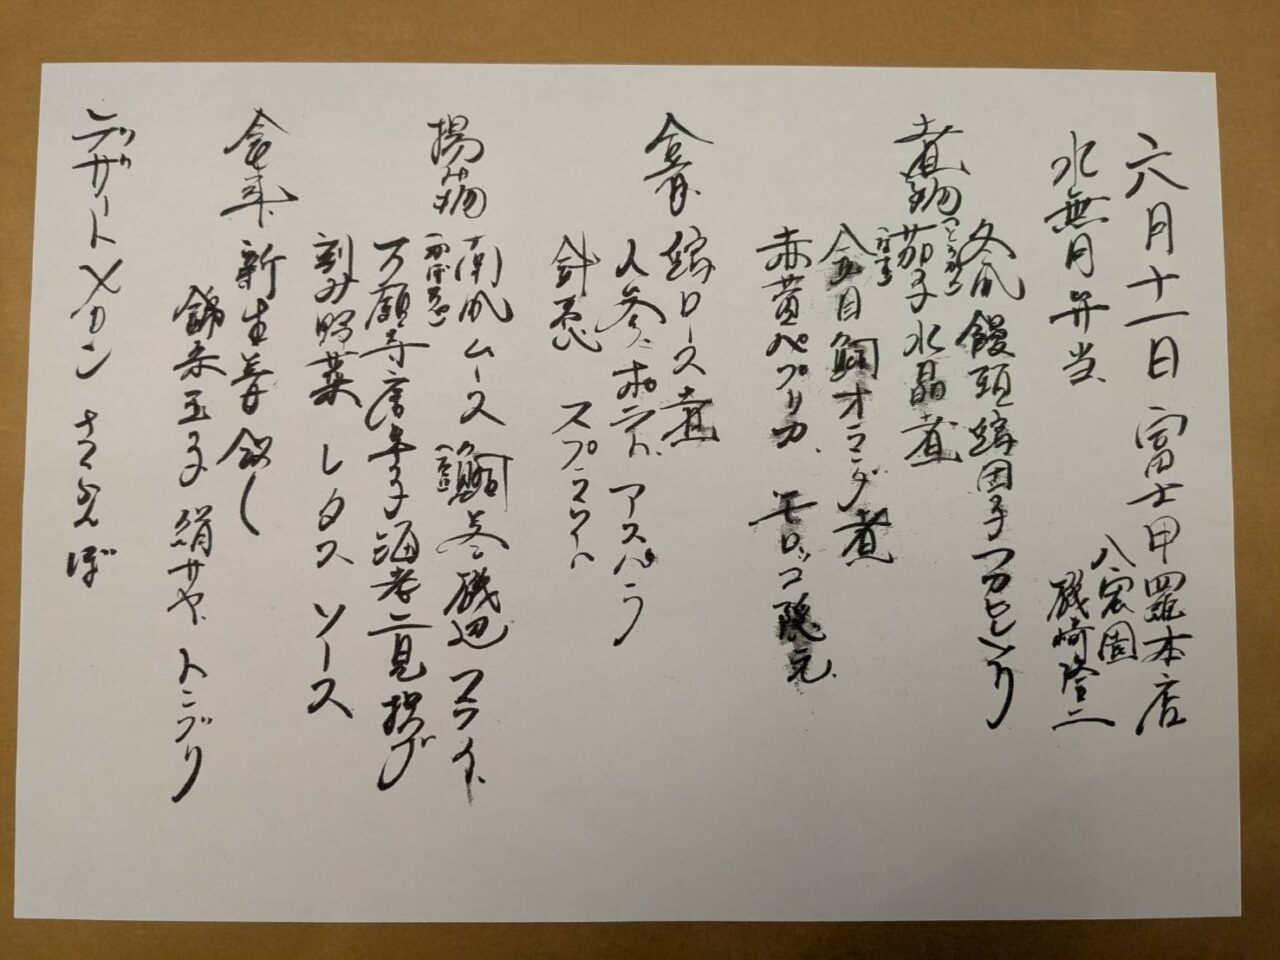 六月十一日 富士甲羅本店
八宏園
水無月弁当 磯崎隆二
煮物 冬瓜饅頭 団子
茄子水晶煮
金目鯛オランダ煮
赤黄パプリカ モロッコ隠元
ロース煮
人参 ポテト アスパラ
針葱 スプラウト
揚物 南瓜ムース 磯辺フライ
万願寺唐辛子海老二見揚げ
刻み野菜 レタス ソース
新生姜飯し
錦糸玉子 絹サヤ トンブリ
デザート メロン さくらんぼ